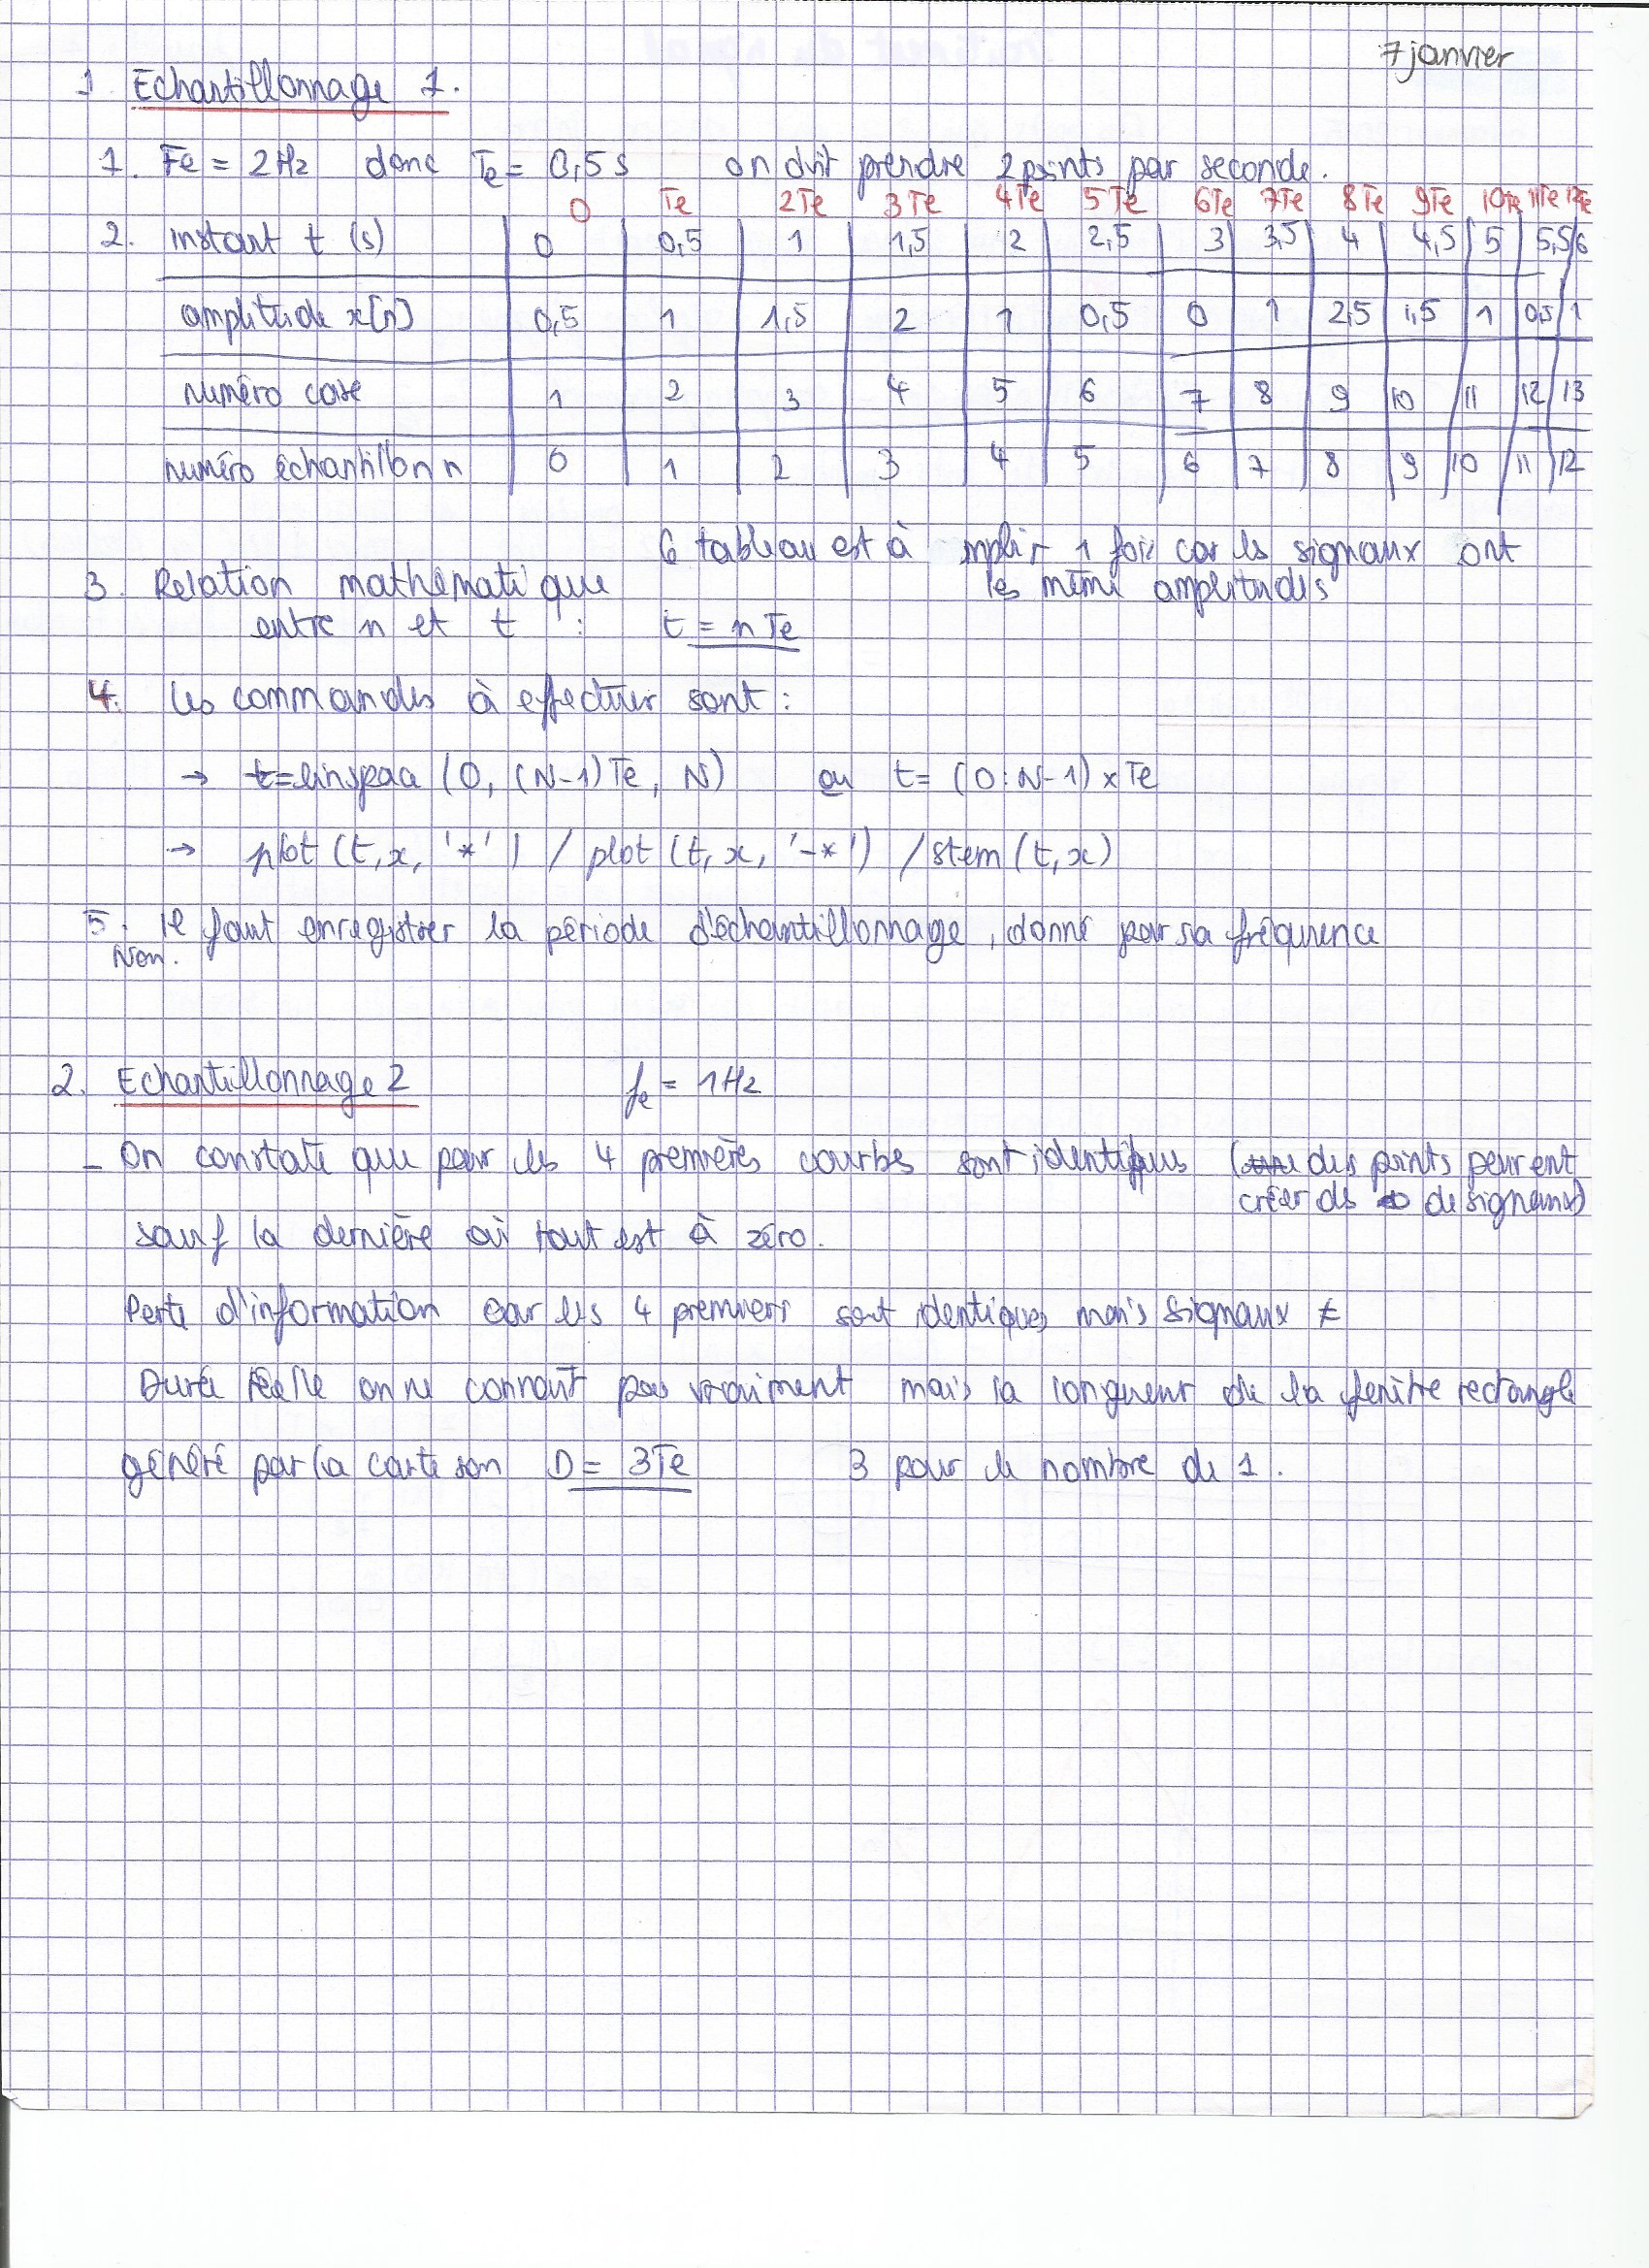 7 janvier
1 Echantillonnage 1.
1. Fe = 2Hz donc Te = 0,5 s on doit prendre 2 points par seconde.
0 Te 2Te 3Te 4Te 5Te 6Te 7Te 8Te 9Te 10Te 11Te 12Te
2. instant t (s) 0 0,5 1 1,5 2 2,5 3 3,5 4 4,5 5 5,5 6
amplitude x[n] 0,5 1 1,5 2 1 0,5 0 1 2,5 1,5 1 0,5 1
numéro case 1 2 3 4 5 6 7 8 9 10 11 12 13
numéro échantillon n 0 1 2 3 4 5 6 7 8 9 10 11 12
tableau est à 1 fois car les signaux ont
les même amplitudes
3. Relation mathématique
entre n et t : t = nTe
4. Les commandes à effectuer sont :
→ t=linspace (0, (N-1)Te, N) ou t= (0:N-1)×Te
→ plot (t, x, '*') / plot (t, x, '-*') / stem (t, x)
5. Il faut enregistrer la période d'échantillonnage, donné par sa fréquence
Non.
2. Echantillonnage 2 fe = 1Hz
- On constate que pour les 4 premières courbes sont identiques ( des points peuvent
créer des de signaux)
sauf la dernière où tout est à zéro.
Perte d'information car les 4 premiers sont identiques mais signaux ≠
Durée réelle on ne connaît pas vraiment mais la longueur de la fenêtre rectangle
généré par la carte son D = 3Te 3 pour le nombre de 1.